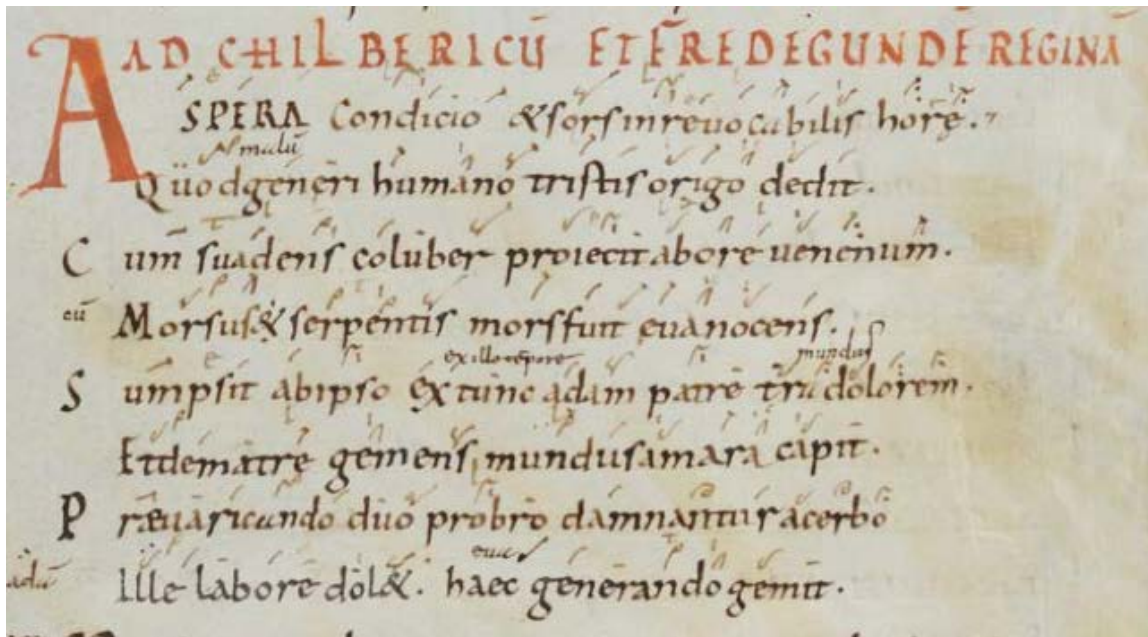 AD CHILBERICŪ ET FREDEGUNDE REGINĀ
ASPERA Condicio & sors inrevocabilis horę.
malū
Quod generi humano tristis origo dedit.
Cum suadens coluber proiecit ab ore venenum.
eū Morsus & serpentis mors fuit eva nocens.
ex illo tēpore mundus
Sumpsit ab ipso ex tunc adam patre dolorem.
Et de matre gemens mundus amara capit.
Prævaricando duo probro damnantur acerbo
evae
adā Ille labore dol&. haec generando gemit.